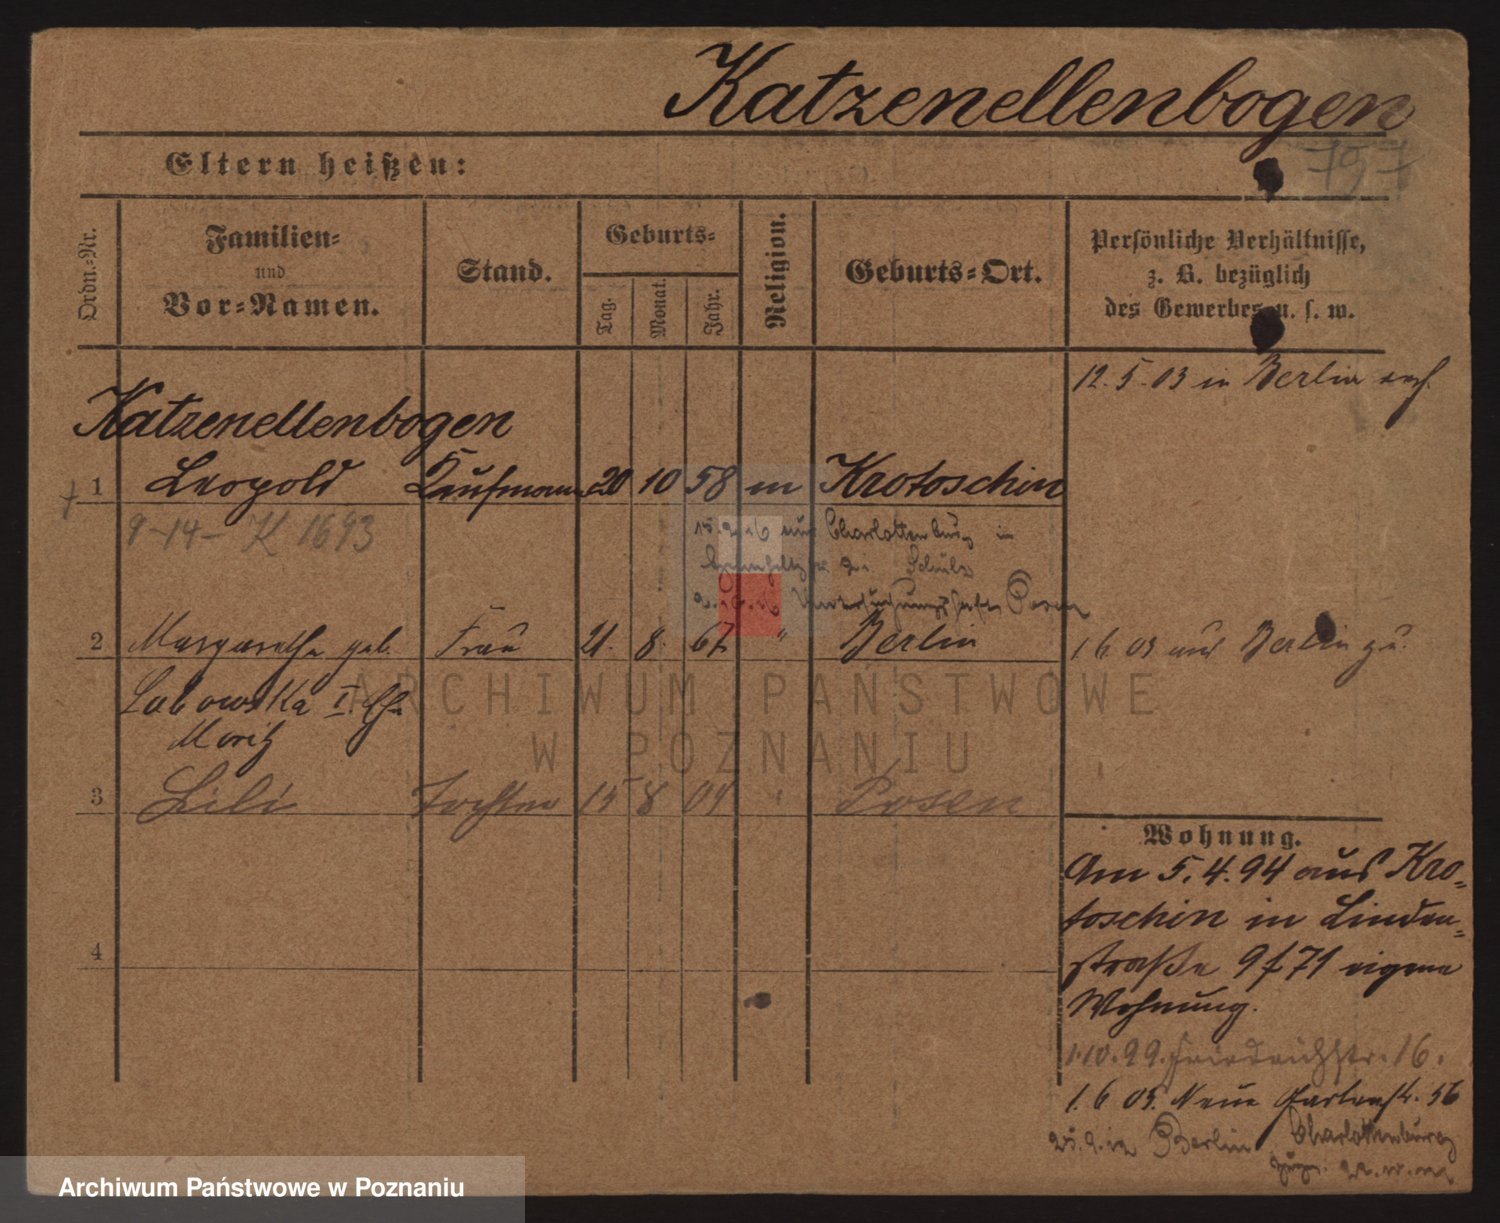 Katzenellenbogen
Eltern heißen:
797
Ordn.-Nr.
Familien-
und
Vor-Namen.
Stand.
Geburts-
Tag.
Monat.
Jahr.
Religion.
Geburts-Ort.
Persönliche Verhältnisse,
z. B. bezüglich
des Gewerbes u. s. w.
12. 5. 03 in Berlin
Katzenellenbogen
1 Leopold Kaufmann 20 10 58 m Krotoschin
9-14- K 1693
aus Charlottenburg in
Schulz
Untersuchungshaft Posen
2 Margarethe geb. Frau 21. 8. 67 " Berlin 1. 6. 03 aus Berlin zu.
Labowska I. Ehe
Moritz
3 Lili Tochter 15 8 04 " Posen
Wohnung.
Am 5. 4. 94 aus Kro-
toschin in Linden-
straße 9 f 71 eigene
Wohnung.
1.10.99. Friedrichstr. 16.
1. 6 03. Neue Gartenstr. 56
25. 9. 12 Berlin Charlottenburg
4
ARCHIWUM PAŃSTWOWE
W POZNANIU
Archiwum Państwowe w Poznaniu